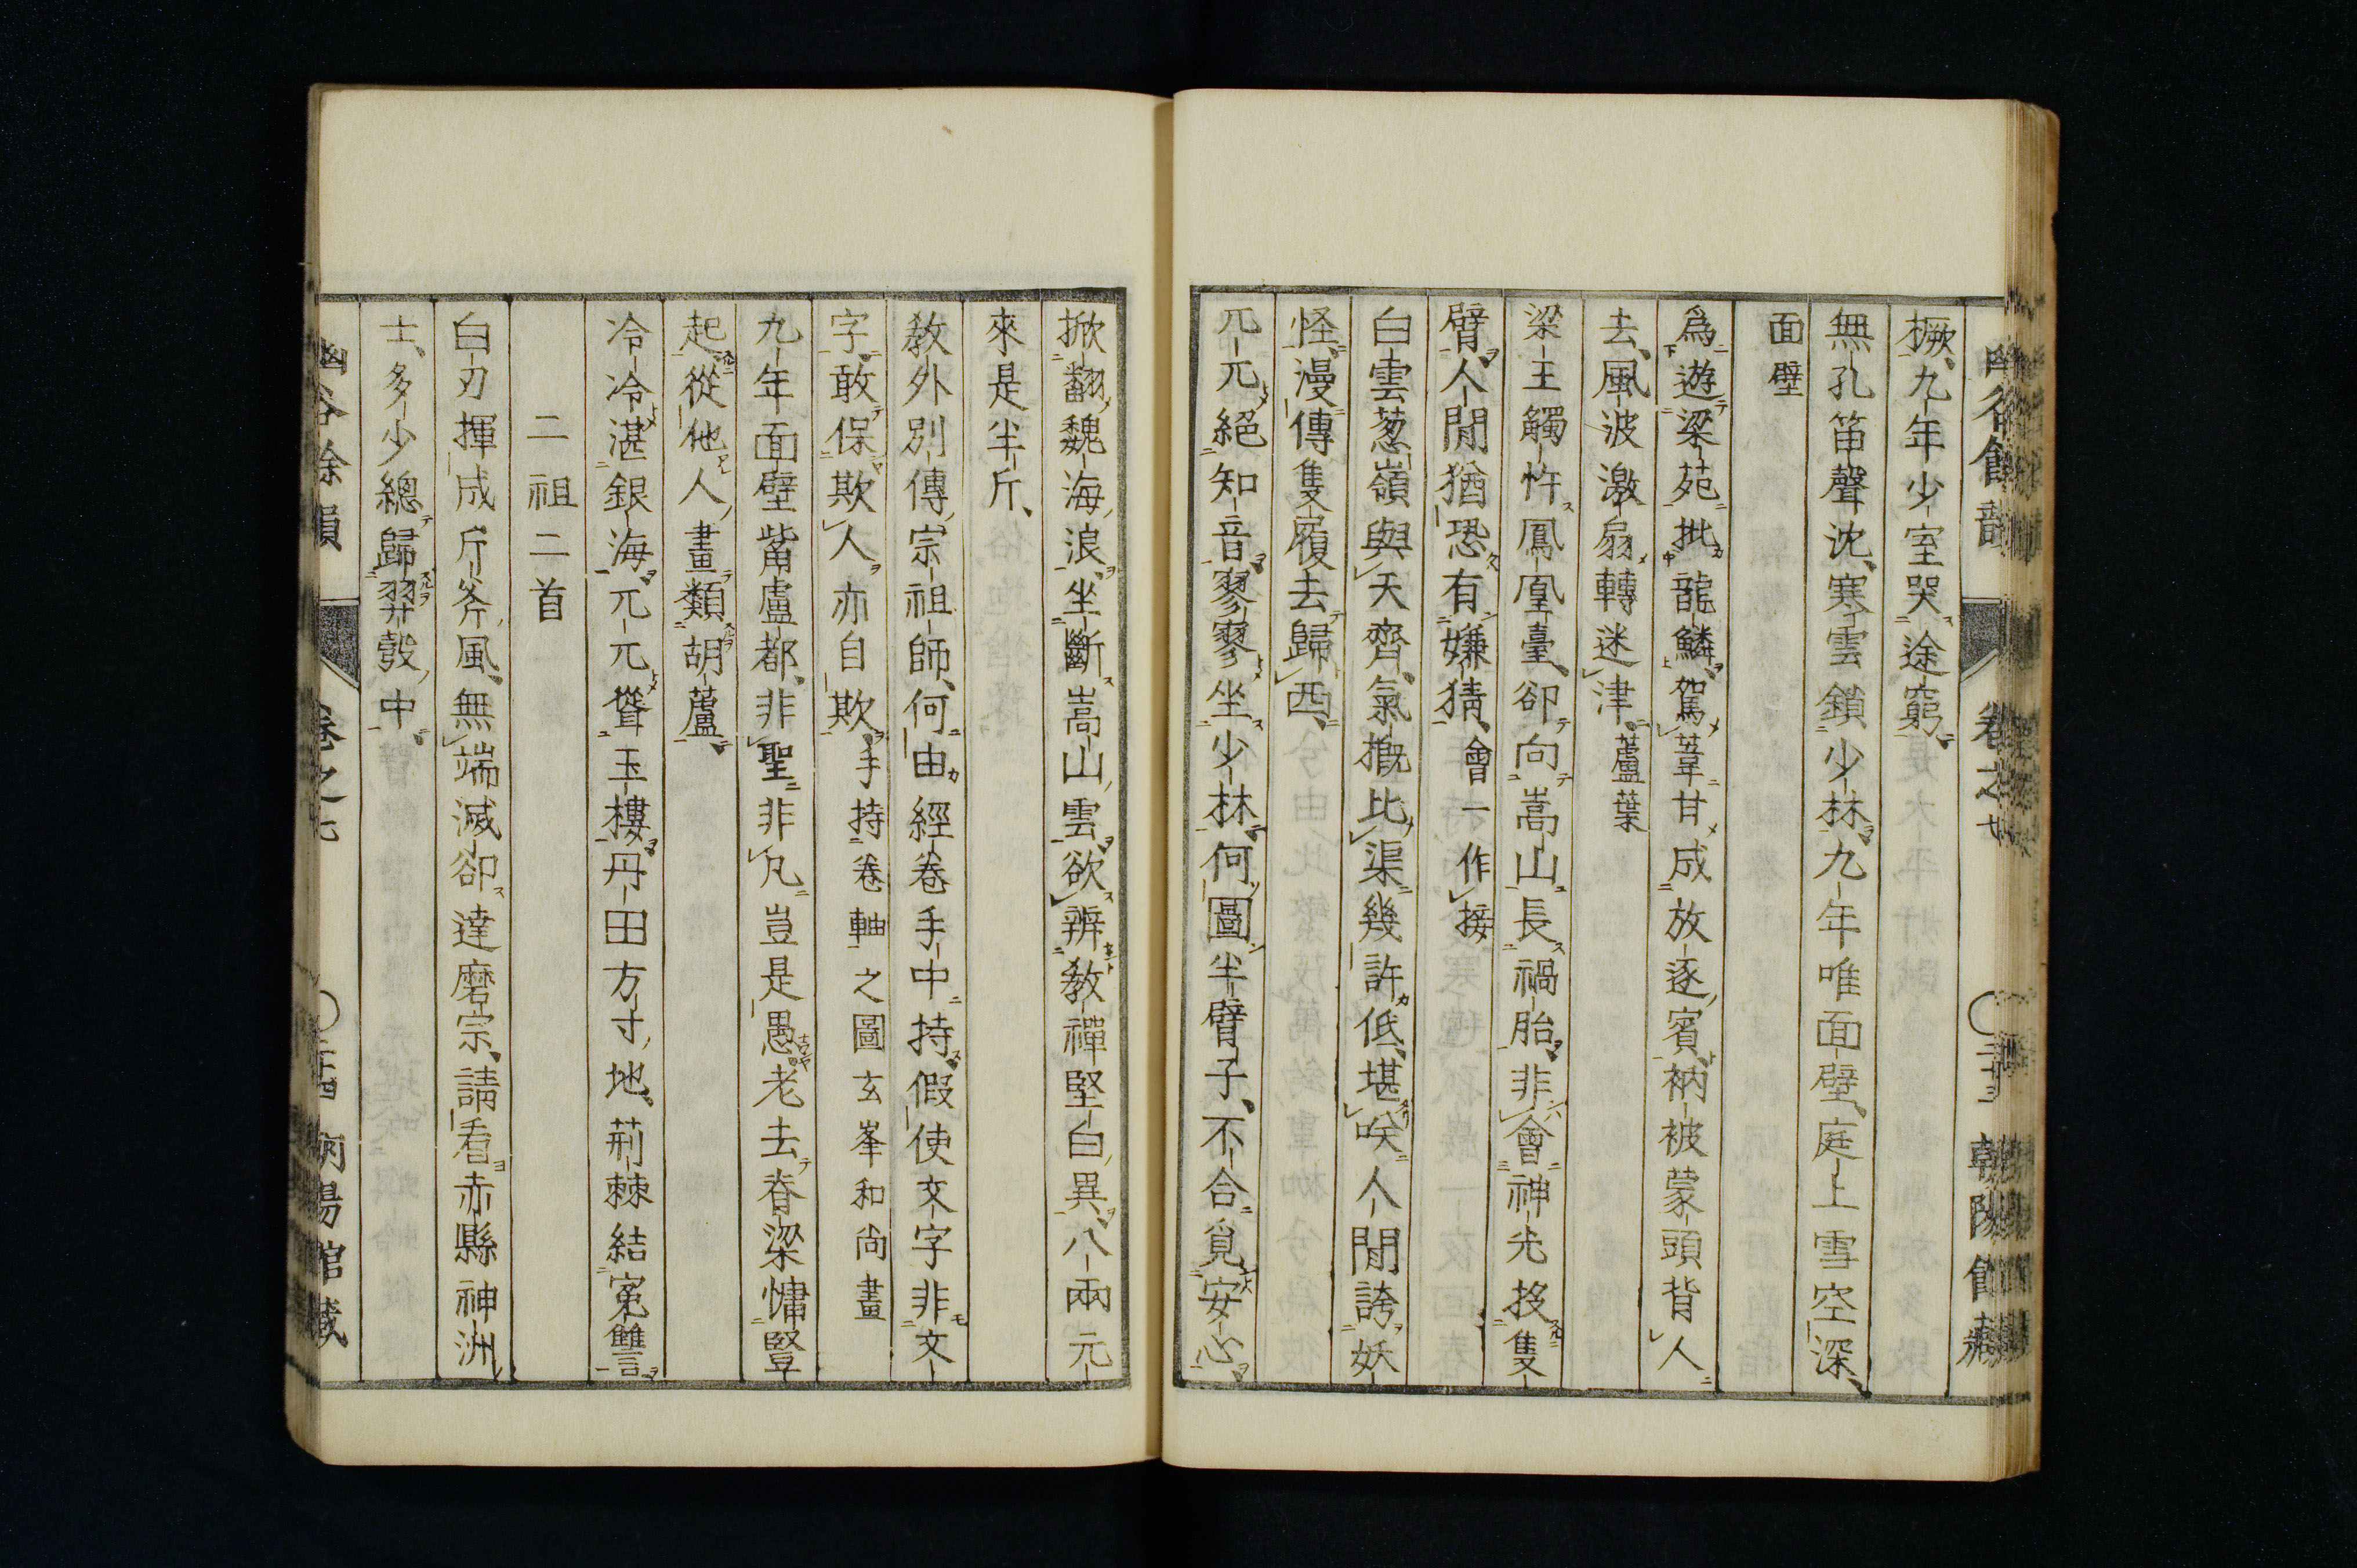 橛、九年少室哭途窮、
無孔笛聲沈、寒雲鎖少林、九年唯面壁、庭上雪空深、
面壁
爲遊梁苑批龍鱗、駕葦甘成放逐賓、衲被蒙頭背人
去、風波激扇轉迷津、蘆葉
梁王觸忤鳳凰臺、卻向嵩山長禍胎、非會神光投隻
臂、人間猶恐有嫌猜、會一作接
白雲葱嶺與天齊、氣概比渠幾許低、堪咲人間誇妖
怪、漫傳隻履去歸西、
兀兀絕知音、寥寥坐少林、何圖半臂子、不合覓安心、
掀翻魏海浪、坐斷嵩山雲、欲辨教禪堅白異、八兩元
來是半斤、
教外別傳宗祖師、何由經卷手中持、假使文字非文
字、敢保欺人亦自欺、手持卷軸之圖玄峯和尚畫
九年面壁觜盧都、非聖非凡豈是愚、老去脊梁慵豎
起、從他人畫類胡蘆、
冷冷湛銀海、兀兀聳玉樓、丹田方寸地、荊棘結寃讐、
二祖二首
白刃揮成斤斧風、無端滅卻達磨宗、請看赤縣神洲
士、多少總歸羿彀中、
幽谷餘韻 卷之七 〇二十四 朝陽館藏